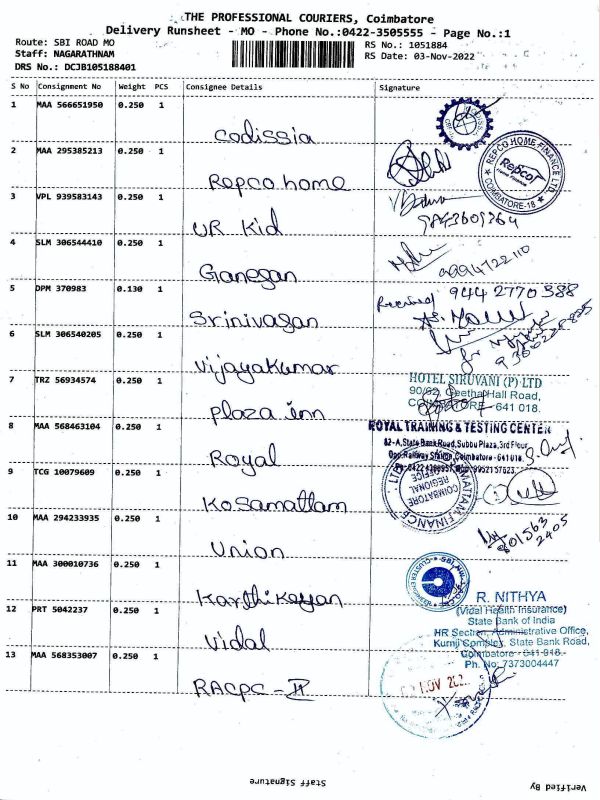 THE PROFESSIONAL COURIERS, Coimbatore
Delivery Runsheet - MO - Phone No.:0422-3505555 - Page No.:1
Route: SBI ROAD MO
RS No.: 1051884
Staff: NAGARATHNAM
RS Date: 03-Nov-2022
DRS No.: DCJB105188401
S No Consignment No Weight PCS Consignee Details Signature
1 MAA 566651950 0.250 1
codissia
2 MAA 295385213 0.250 1
Repco home
REPCO HOME FINANCE LTD.
Repco
COIMBATORE-18
3 VPL 939583143 0.250 1
UR Kid
9843609364
4 SLM 306544410 0.250 1
Ganesan
5 DPM 370983 0.130 1
Srinivasan
Received 9442770388
6 SLM 306540205 0.250 1
vijayakumar
7 TRZ 56934574 0.250 1
plaza inn
HOTEL SIRUVANI (P) LTD
90/62, Geetha Hall Road,
COIMBATORE - 641 018.
8 MAA 568463104 0.250 1
Royal
ROYAL TRAINING & TESTING CENTER
82-A, State Bank Road, Subbu Plaza, 3rd Floor,
Opp. Railway Station, Coimbatore - 641 018
9 TCG 10079609 0.250 1
Kosamattam
KOSAMATTAM FINANCE LTD
COIMBATORE
REGIONAL
OFFICE
10 MAA 294233935 0.250 1
Union
801563
2405
11 MAA 300010736 0.250 1
Karthikeyan
12 PRT 5042237 0.250 1
Vidal
R. NITHYA
(Vidal Health Insurance)
State Bank of India
HR Section, Administrative Office,
Kurnji Complex, State Bank Road,
Coimbatore - 641 018.
Ph. No: 7373004447
13 MAA 568353007 0.250 1
RACPC - II
NOV 202
Staff Signature
Verified By